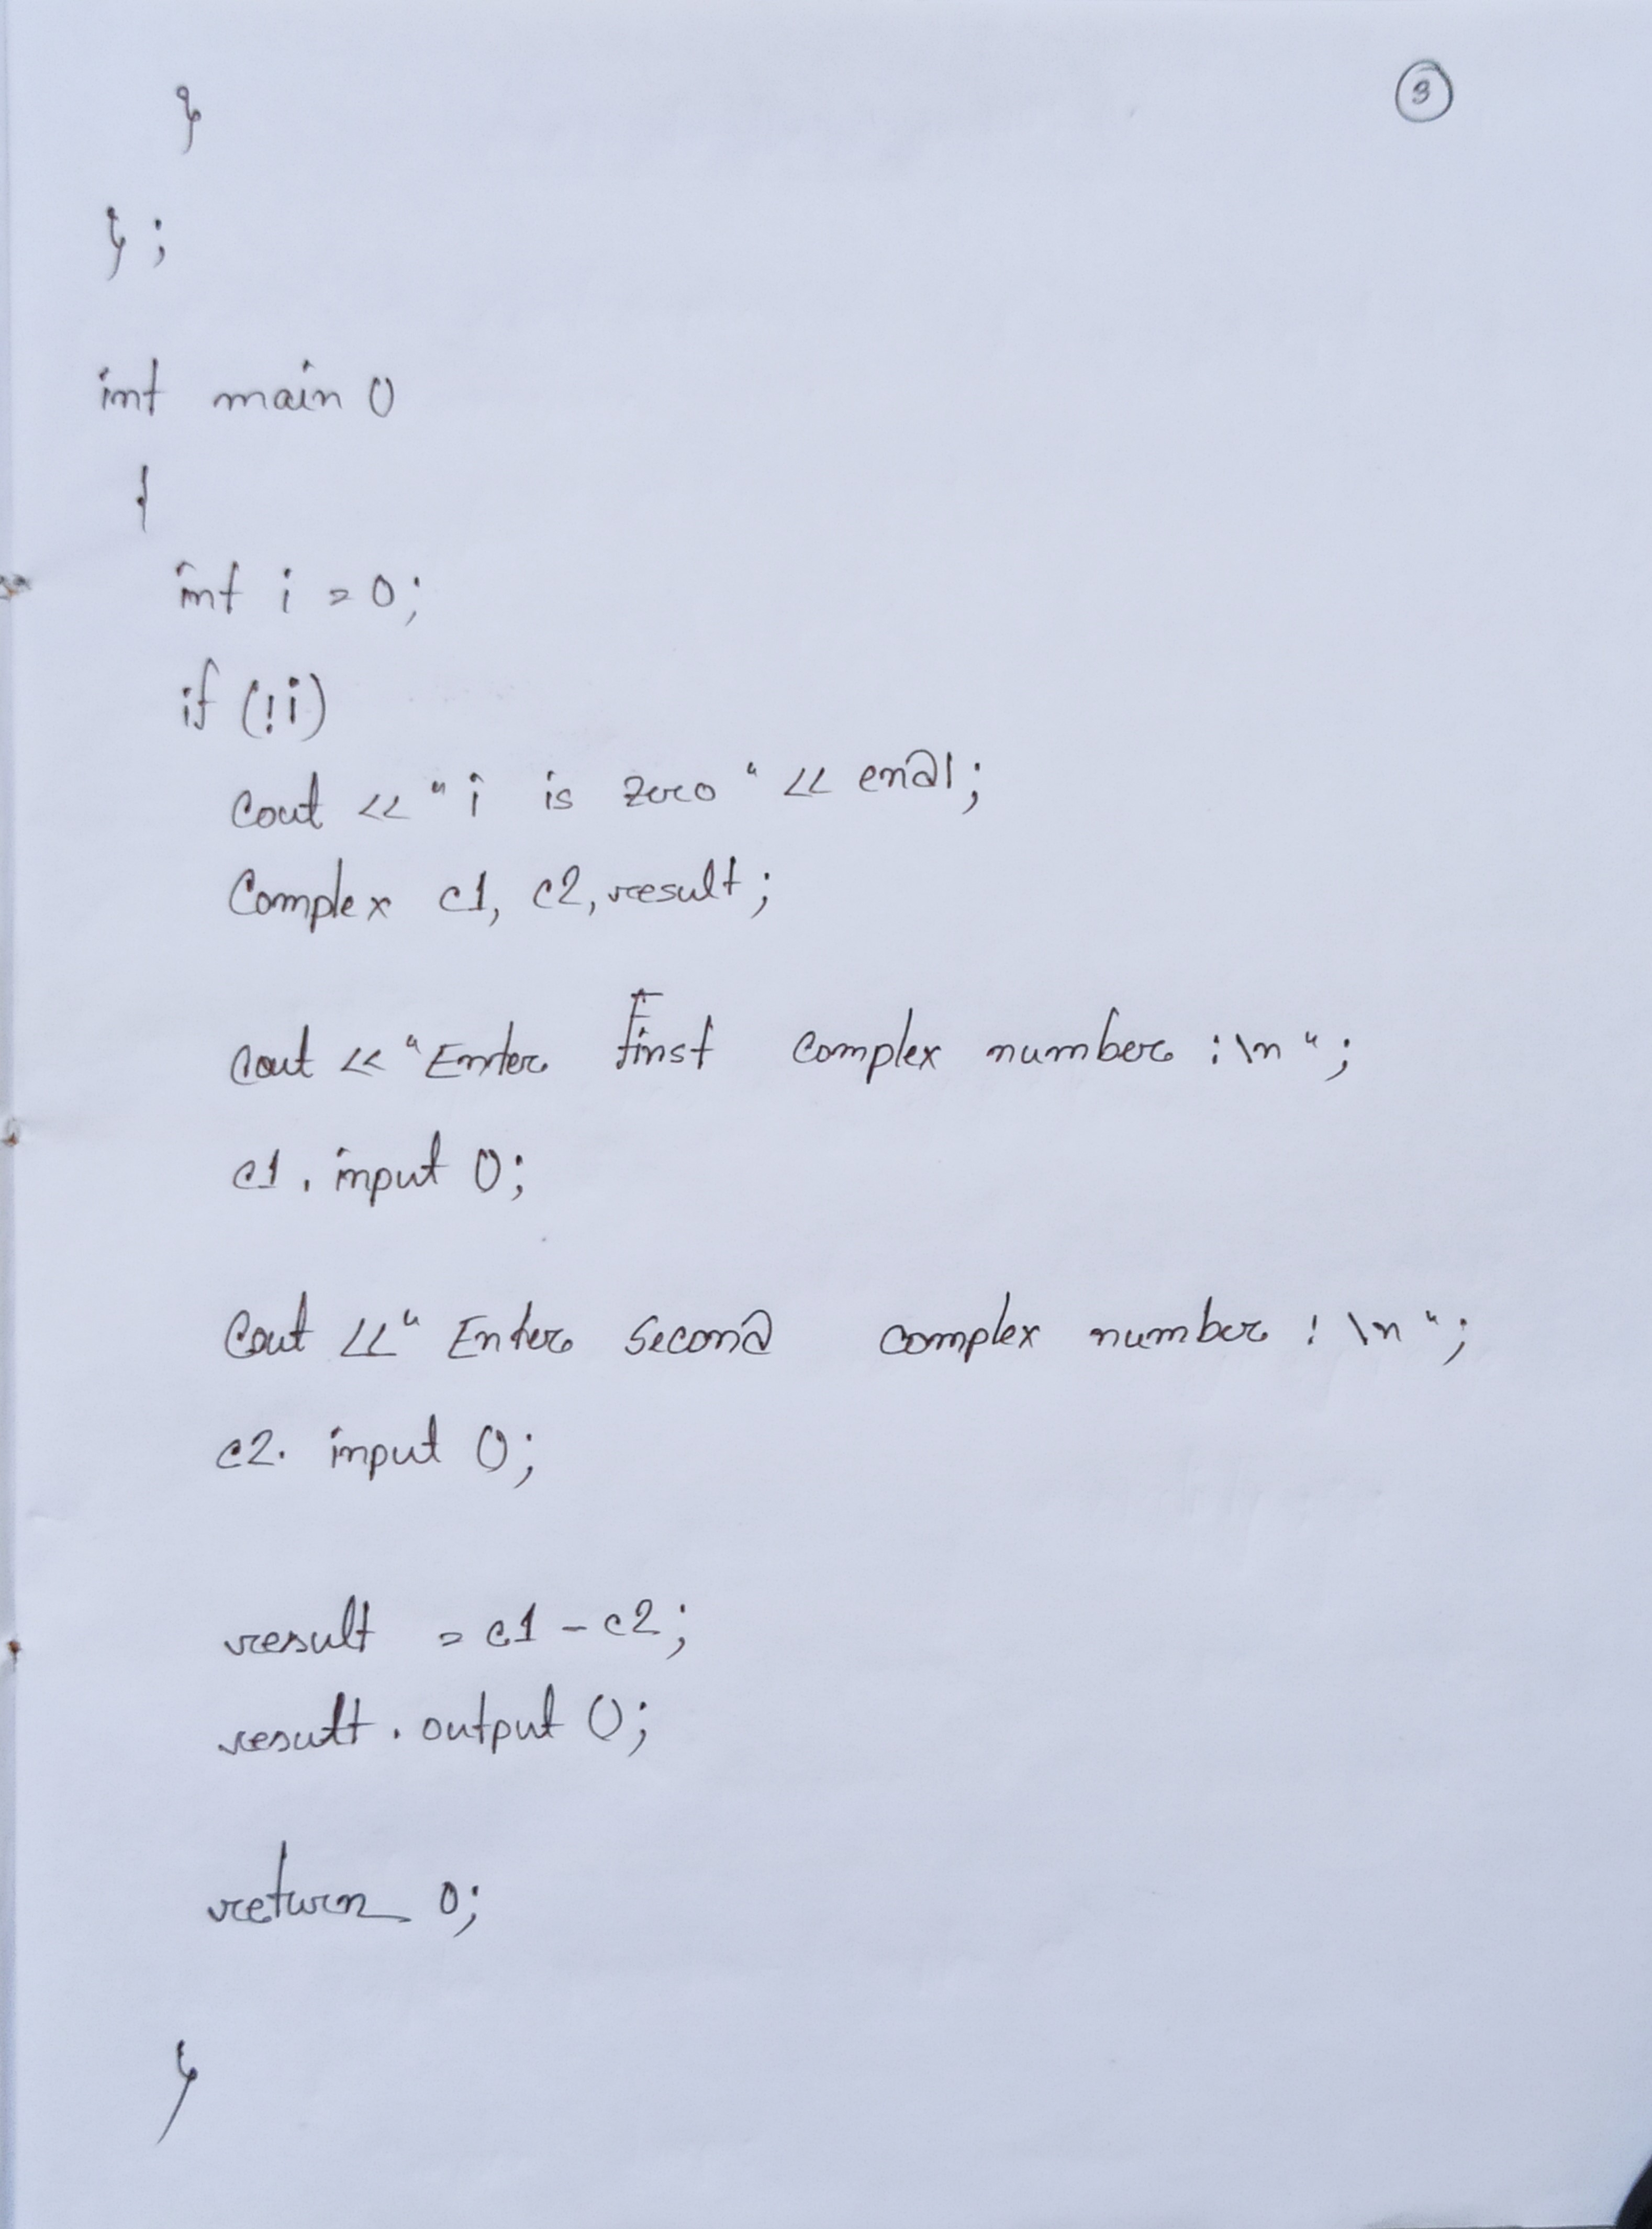 3
}
};
int main ()
{
int i = 0;
if (!i)
Cout << "i is zero" << endl;
Complex c1, c2, result;
Cout << "Enter First complex number :\n";
c1. input ();
Cout << "Enter second complex number : \n";
c2. input ();
result = c1 - c2;
result. output ();
return 0;
}